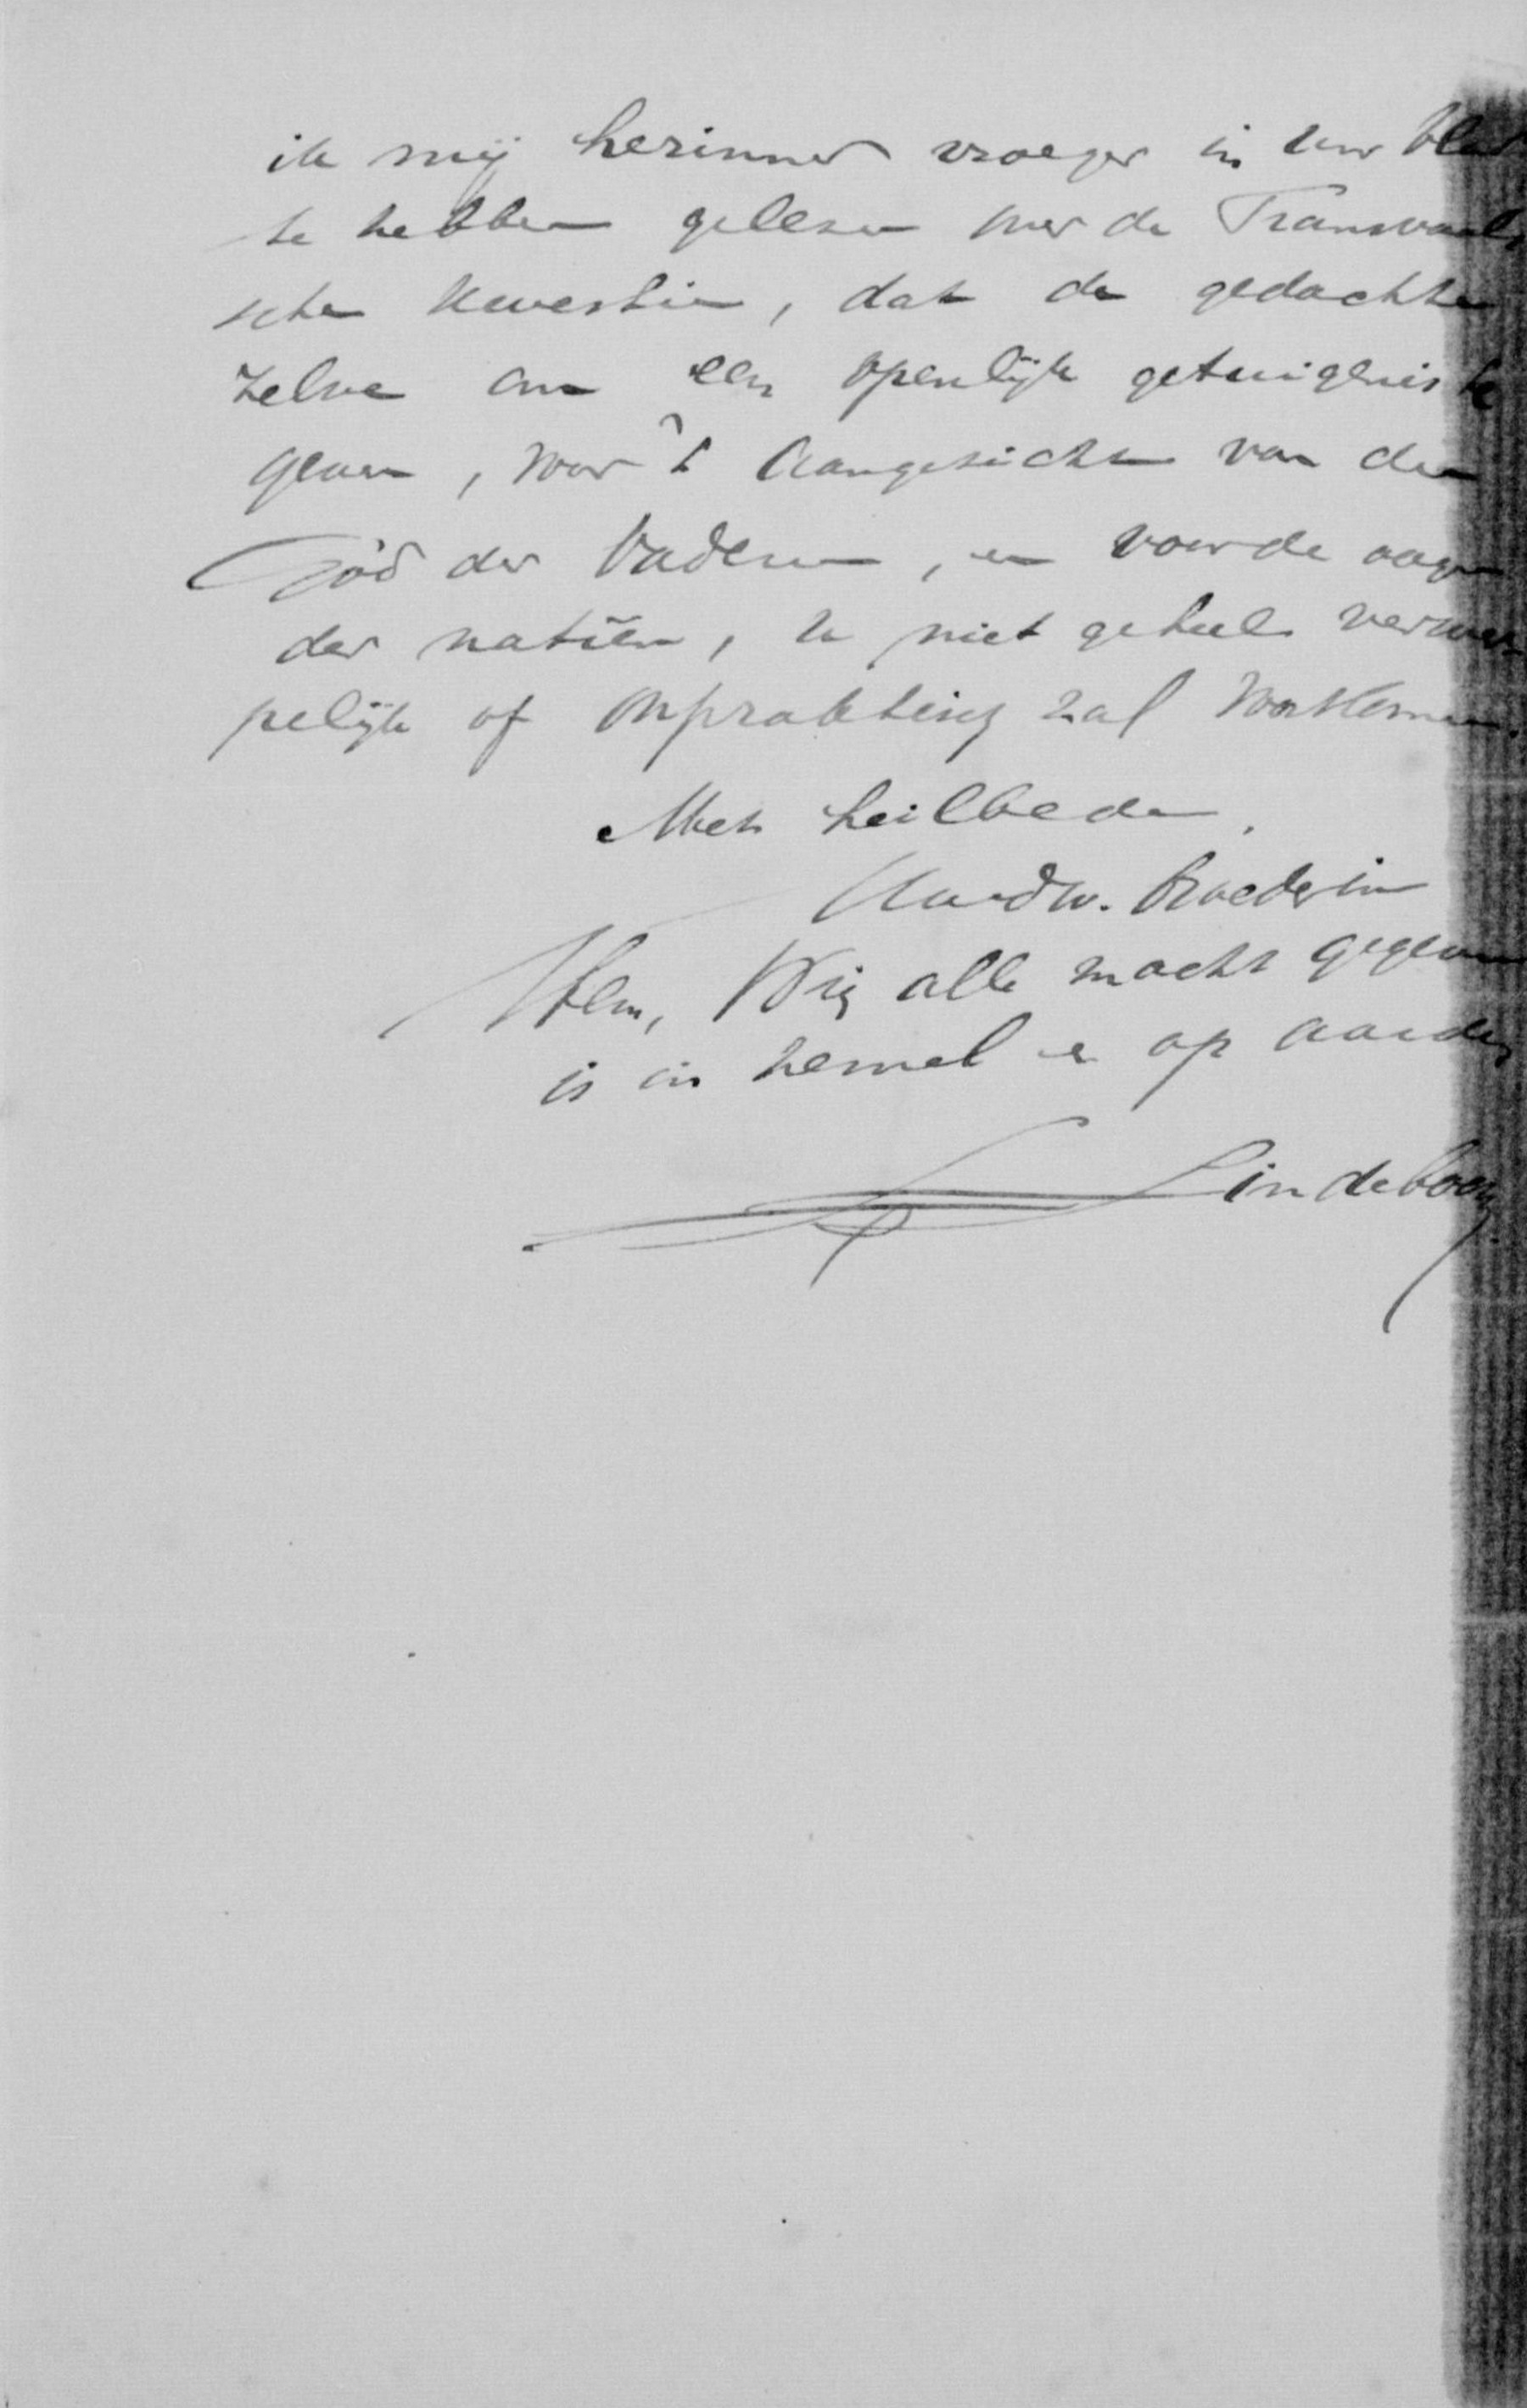 ik mij herinner vroeger in uw blad
te hebben gelezen over de Transvaal-
sche kwestie, dat de gedachte
zelve om een openlijk getuigenis te
geven, voor 't Aangezicht van den
God der Vaderen, en voor de oogen
der natiën, U niet geheel verwer-
pelijk of onpraktisch zal voorkomen.
Met heilbede,
Uw dw. broeder in
Hem, Wien alle macht gegeven
is in hemel en op aarde,
Lindeboom